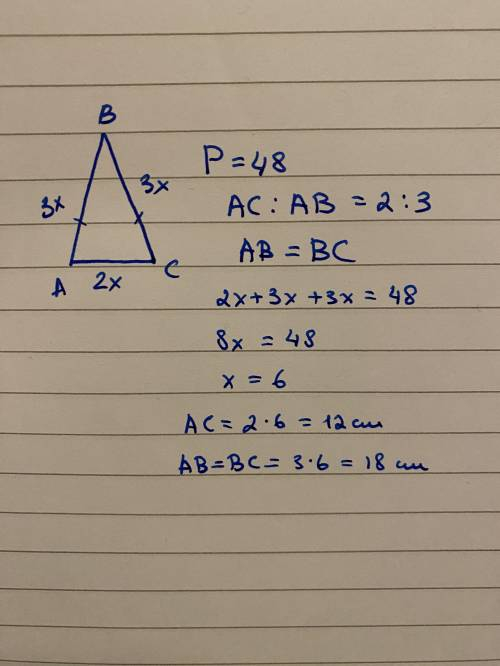 B
3x
3x
A
2x
C
P = 48
AC : AB = 2 : 3
AB = BC
2x + 3x + 3x = 48
8x = 48
x = 6
AC = 2 · 6 = 12 cm
AB = BC = 3 · 6 = 18 cm